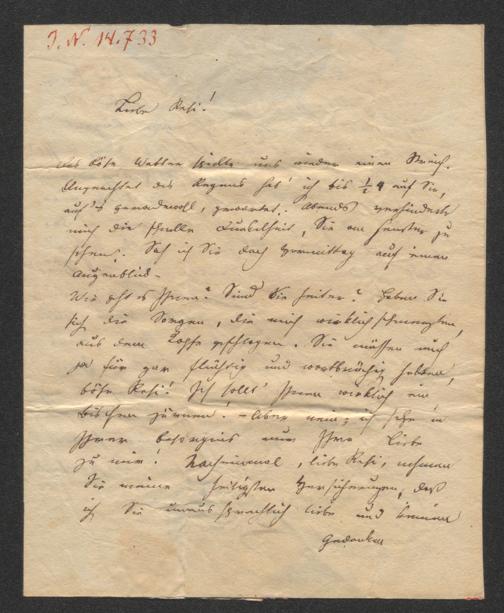 I. N. 14.733
Liebe Resi!
Das böse Wetter spielte uns wieder einen Streich.
Ungeachtet des Regens hab' ich bis ½ 4 auf Sie,
auf's geradewohl, gewartet. Abends verhinderte
mich die schnelle Dunkelheit, Sie am Fenster zu
sehen. Sah ich Sie doch Vormittag auf einen
Augenblick –
Wie geht es Ihnen? Sind Sie heiter? Haben Sie
sich die Sorgen, die mich wirklich schmerzten,
aus dem Kopfe geschlagen. Sie müssen mich
ja für gar flüchtig und wortbrüchig halten,
böse Resi! Ich sollt' Ihnen wirklich ein
Bischen zürnen! – Aber nein, ich sehe in
Ihrer Besorgniß nur Ihre Liebe
zu mir! Nocheinmal, liebe Resi, nehmen
Sie meine heiligsten Versicherungen, daß
ich Sie unaussprechlich liebe und keinen
Gedanken